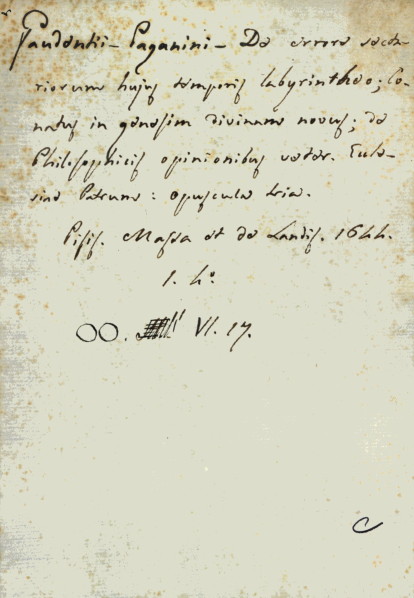 Gaudentii - Paganini - De errore secta-
riorum hujus temporis labyrintheo; Co-
natus in genesim divinam novus; de
Philosophicis opinionibus veter. Eccle-
siae Patrum: opuscula tria.
Pisis. Massa et de Landis. 1644.
1. 4°.
OO. VI. 17.
C